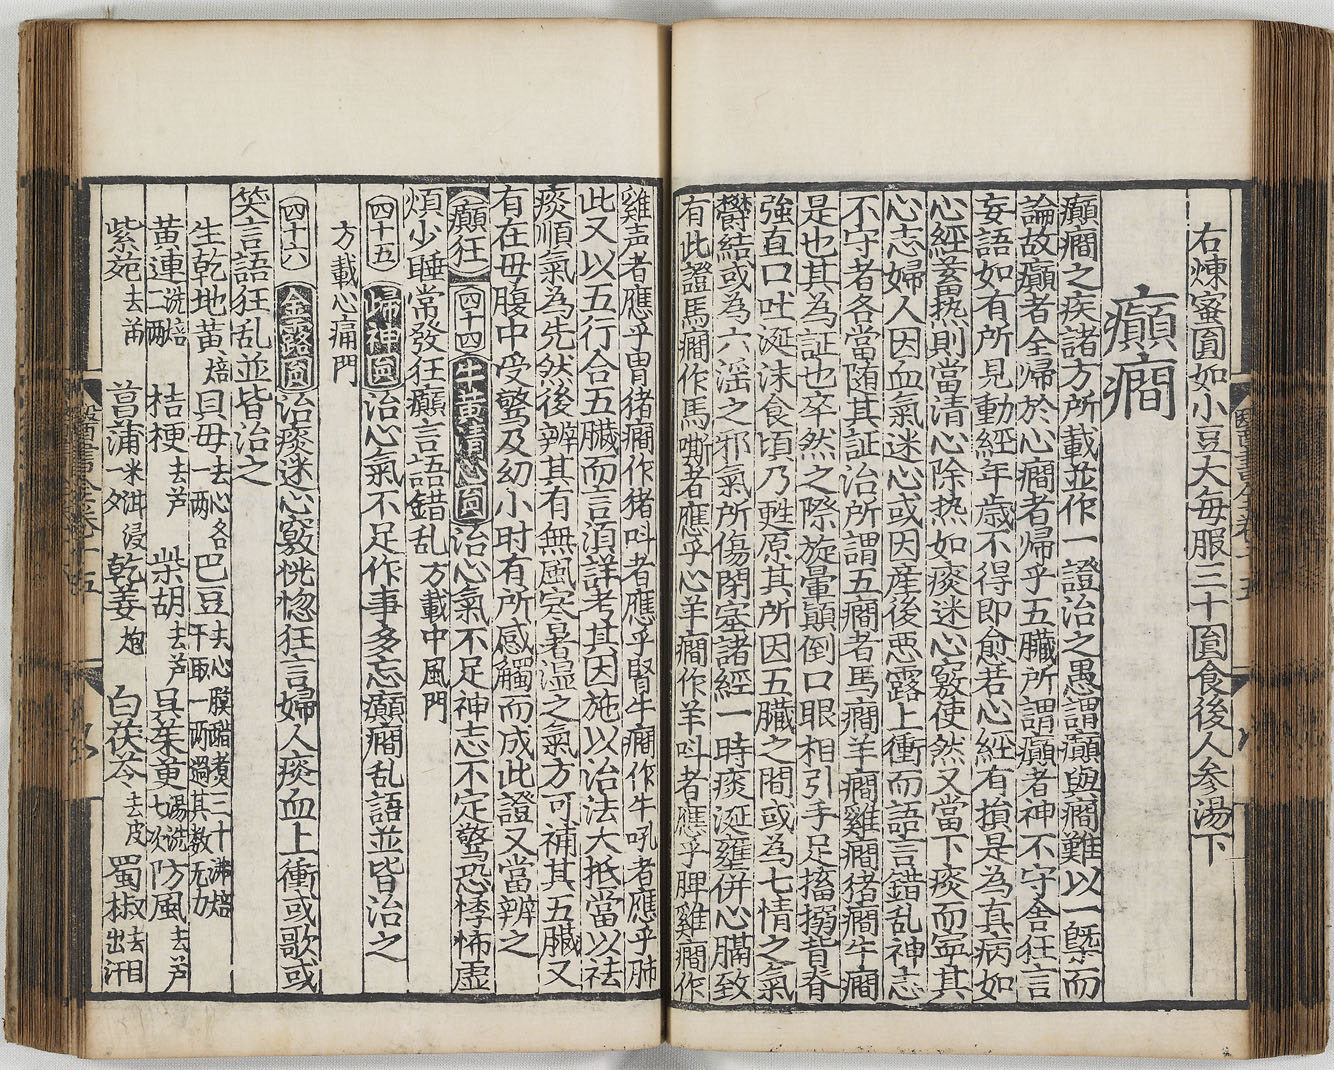 右煉蜜圓如小豆大毎服三十圓食後人参湯下
癲癇
癲癇之疾諸方所載並作一證治之愚謂癲與癇難以一槩而
論故癲者全歸於心癇者歸乎五臟所謂癲者神不守舎狂言
妄語如有所見動經年歳不得即愈若心經有損是為真病如
心經蓄热則當清心除热如痰迷心竅使然又當下痰而寧其
心志婦人因血氣迷心或因産後悪露上衝而語言錯乱神志
不守者各當随其証治所謂五癇者馬癇羊癇雞癇猪癇牛癇
是也其為証也卒然之際旋暈顛倒口眼相引手足搐搦背脊
強直口吐涎沫食頃乃甦原其所因五臓之間或為七情之氣
欝結或為六淫之邪氣所傷閉塞諸經一時痰涎壅併心膈致
有此證馬癇作馬嘶者應乎心羊癇作羊呌者應乎脾雞癇作
雞声者應乎胃猪癇作猪呌者應乎腎牛癇作牛吼者應乎肺
此又以五行合五臓而言湏詳考其因施以治法大抵當以祛
痰順氣為先然後辨其有無風寒暑湿之氣方可補其五臓又
有在毋腹中受驚及幼小时有所感觸而成此證又當辨之
癲狂 四十四 牛黄清心圓 治心氣不足神志不定驚恐悸怖虚
煩少睡常發狂癲言語錯乱 方載中風門
四十五 歸神圓 治心氣不足作事多忘癲癇乱語並皆治之
方載心痛門
四十六 金露圓 治痰迷心竅恍惚狂言婦人痰血上衝或歌或
笑言語狂乱並皆治之
生乾地黄焙 貝毋去心各一兩 巴豆去心膜醋煮三十沸焙干取一兩過其数无力
黄連洗焙二兩 桔梗去芦 柴胡去芦 呉茱萸湯洗七次 防風去芦
紫菀去苗 菖蒲米泔浸一夕 乾姜炮 白茯苓去皮 蜀椒去目出汗